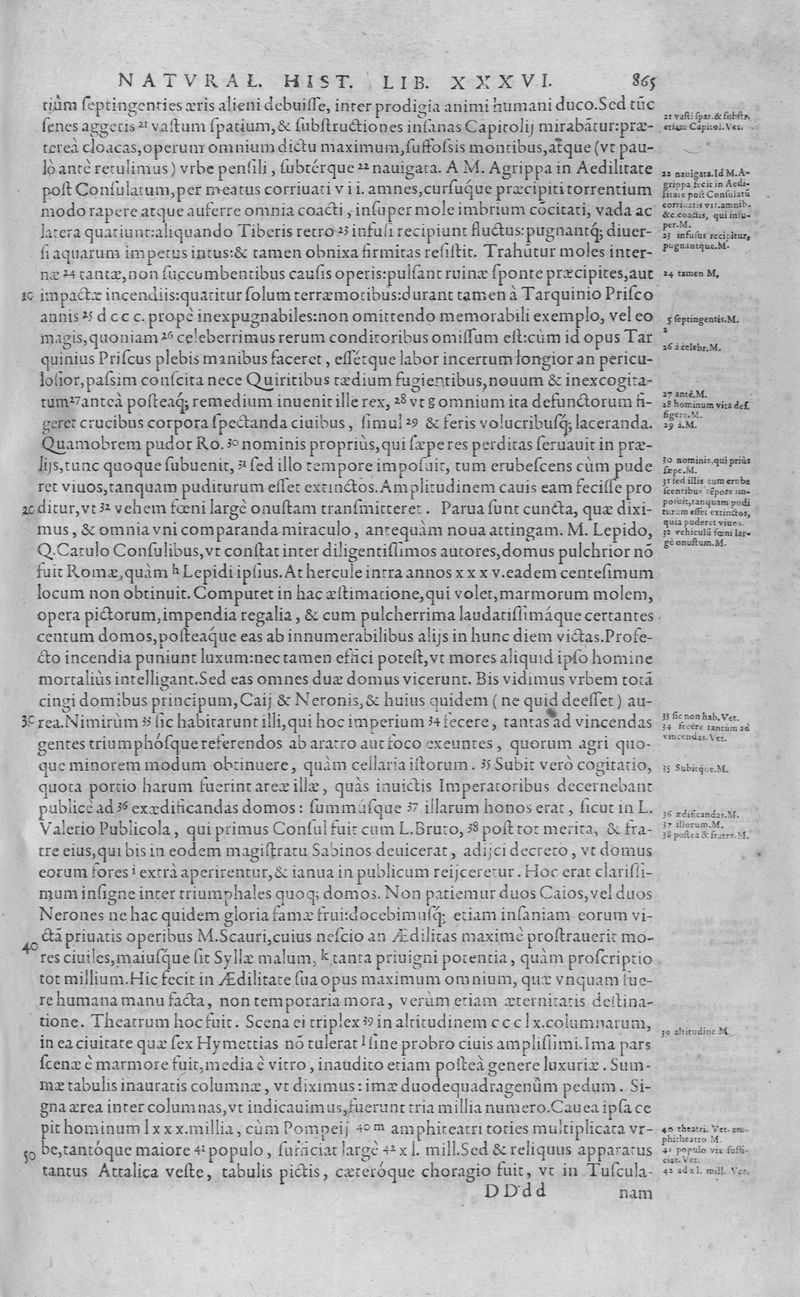 NATVRAL. HIST. LIB. XXXVI. 865
tiûm septingenties æris alieni debuisse, inter prodigia animi humani duco. Sed tũc
senes aggeris ²¹ vastum spatium, & substructiones insanas Capitolij mirabãtur: præ-
tereà cloacas, operum omnium dictu maximum, suffossis montibus, atque (vt pau-
lò antè retulimus) vrbe pensili, subtérque ²² nauigata. A M. Agrippa in Aedilitate
post Consulatum, per meatus corriuati v i i. amnes, cursuque præcipiti torrentium
modo rapere atque auferre omnia coacti, insuper mole imbrium cõcitati, vada ac
latera quatiunt: aliquando Tiberis retro ²³ infusi recipiunt fluctus: pugnantq; diuer-
si aquarum impetus intus: & tamen obnixa firmitas resistit. Trahũtur moles inter-
næ ²⁴ tantæ, non succumbentibus causis operis: pulsant ruinæ sponte præcipites, aut
10 impactæ incendiis: quatitur solum terræmotibus: durant tamen à Tarquinio Prisco
annis ²⁵ d c c c. propè inexpugnabiles: non omittendo memorabili exemplo, vel eo
magis, quoniam ²⁶ celeberrimus rerum conditoribus omissum est: cùm id opus Tar
quinius Priscus plebis manibus faceret, essétque labor incertum longior an pericu-
losior, passim conscita nece Quiritibus tædium fugientibus, nouum & inexcogita-
tum ²⁷ anteà posteaq; remedium inuenit ille rex, ²⁸ vt g omnium ita defunctorum fi-
geret crucibus corpora spectanda ciuibus, simul ²⁹ & feris volucribusq; laceranda.
Quamobrem pudor Ro. ³⁰ nominis propriùs, qui sæpe res perditas seruauit in præ-
lijs, tunc quoque subuenit, ³¹ sed illo tempore imposuit, tum erubescens cùm pude
ret viuos, tanquam puditurum esset extinctos. Amplitudinem cauis eam fecisse pro
20 ditur, vt ³² vehem fœni largè onustam transmitteret. Parua sunt cuncta, quæ dixi-
mus, & omnia vni comparanda miraculo, antequàm noua attingam. M. Lepido,
Q. Catulo Consulibus, vt constat inter diligentissimos autores, domus pulchrior nõ
fuit Romæ, quàm ʰ Lepidi ipsius. At hercule intra annos x x x v. eadem centesimum
locum non obtinuit. Computet in hac æstimatione, qui volet, marmorum molem,
opera pictorum, impendia regalia, & cum pulcherrima laudatissimáque certantes
centum domos, posteaque eas ab innumerabilibus alijs in hunc diem victas. Profe-
cto incendia puniunt luxum: nec tamen effici potest, vt mores aliquid ipso homine
mortaliùs intelligant. Sed eas omnes duæ domus vicerunt. Bis vidimus vrbem totã
cingi domibus principum, Caij & Neronis, & huius quidem ( ne quid deesset ) au-
30 rea. Nimirùm ³³ sic habitarunt illi, qui hoc imperium ³⁴ fecere, tantas ad vincendas
gentes triumphósque referendos ab aratro aut foco exeuntes, quorum agri quo-
que minorem modum obtinuere, quàm cellaria istorum. ³⁵ Subit verò cogitatio,
quota portio harum fuerint areæ illæ, quàs inuictis Imperatoribus decernebant
publicè ad ³⁶ exædificandas domos: summúsque ³⁷ illarum honos erat, sicut in L.
Valerio Publicola, qui primus Consul fuit cum L. Bruto, ³⁸ post tot merita, & fra-
tre eius, qui bis in eodem magistratu Sabinos deuicerat, adijci decreto, vt domus
eorum fores ⁱ extrà aperirentur, & ianua in publicum reijceretur. Hoc erat clarissi-
mum insigne inter triumphales quoq; domos. Non patiemur duos Caios, vel duos
Nerones ne hac quidem gloria famæ frui: docebimusq; etiam insaniam eorum vi-
40 ctã priuatis operibus M. Scauri, cuius nescio an Ædilitas maximè prostrauerit mo-
res ciuiles, maiusque sit Syllæ malum, ᵏ tanta priuigni potentia, quàm proscriptio
tot millium. Hic fecit in Ædilitate sua opus maximum omnium, quæ vnquam fue-
re humana manu facta, non temporaria mora, verùm etiam æternitatis destina-
tione. Theatrum hoc fuit. Scena ei triplex ³⁹ in altitudinem c c c l x. columnarum,
in ea ciuitate quæ sex Hymettias nõ tulerat ˡ sine probro ciuis amplissimi. Ima pars
scenæ è marmore fuit, media è vitro, inaudito etiam posteà genere luxuriæ. Sum-
mæ tabulis inauratis columnæ, vt diximus: imæ duodequadragenûm pedum. Si-
gna ærea inter columnas, vt indicauimus, fuerunt tria millia numero. Cauea ipsa ce
pit hominum l x x x. millia, cùm Pompeij ⁴⁰ ᵐ amphiteatri toties multiplicata vr-
50 be, tantóque maiore ⁴¹ populo, sufficiat largè ⁴² x l. mill. Sed & reliquus apparatus
tantus Attalica veste, tabulis pictis, cæteróque choragio fuit, vt in Tuscula-
DDdd nam
21 vasti spat. & substr.
etiam Capitol. Vet.
22 nauigata. Id M. A-
grippa fecit in Aedi-
litate post Consulatũ
corriuatis vii. amnib.
&c. coactis, qui insu-
per. M.
23 infusus recipitur,
pugnantque. M.
24 tamen M.
5 septingentis. M.
26 à celebr. M.
27 antè. M.
28 hominum vita def.
figere. M.
29 à. M.
30 nominis, qui priùs
sæpe. M.
31 sed illis tum erube
scentibus tẽpore im-
posuit, tanquam pudi
turum esset extinctos,
quia puderet viuos.
32 vehiculũ fœni lar-
gè onustum. M.
33 sic non hab. Vet.
34 fecere tantùm ad
vincendas. Vet.
35 Subitque. M.
36 ædificandas. M.
37 illorum. M.
38 postea & fratre. M.
39 altitudine. M
40 theatri. Vet. am-
phitheatro M.
41 populo vix suffi-
ciat. Vet.
42 ad x l. mill. Vet.